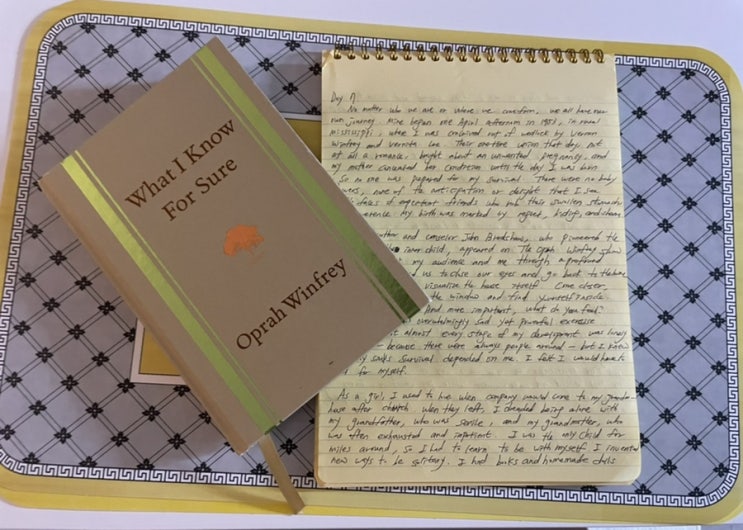 What I Know
For Sure
Oprah Winfrey
Day 7:
No matter who we are or where we comefrom, we all have our
own journey. Mine began one April afternoon in 1953, in rural
mississippi, when I was conceived out of wedlock by Vernon
Winfrey and Vernita Lee. Their onetime union that day, not
at all a romance, brought about an unwanted pregnancy, and
my mother concealed her condition until the day I was born
So no one was prepared for my survival. There were no baby
none of the anticipation or delight that I see
faces of expectant friends who rub their swollen stomachs
My birth was marked by regret, hiding, and shame
author and counselor John Bradshaw, who pioneered the
inner child, appeared on The Oprah Winfrey Show
my audience and me through a profound
us to close our eyes and go back to the home
visualize the house itself. Come closer
the window and find yourself inside.
And more important, what do you feel?
overwhelmingly sad yet powerful exercise
almost every stage of my development was lonely
because there were always people around - but I knew
my souls survival depended on me. I felt I would have to
for myself.
As a girl, I used to love when company would come to my grandmo-
house after church when they left, I dreaded being alone with
my grandfather, who was senile, and my grandmother, who
was often exhausted and impatient. I was the only child for
miles around, so I had to learn to be with myself I invented
new ways to be solitary. I had books and homemade dolls